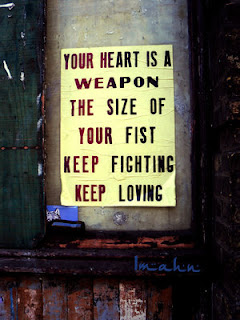 YOUR HEART IS A
WEAPON
THE SIZE OF
YOUR FIST
KEEP FIGHTING
KEEP LOVING
Imahn